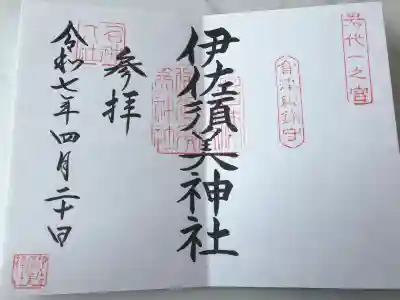 岩代一之宮
会津総鎮守
伊佐須美神社
参拝
令和七年四月二十日